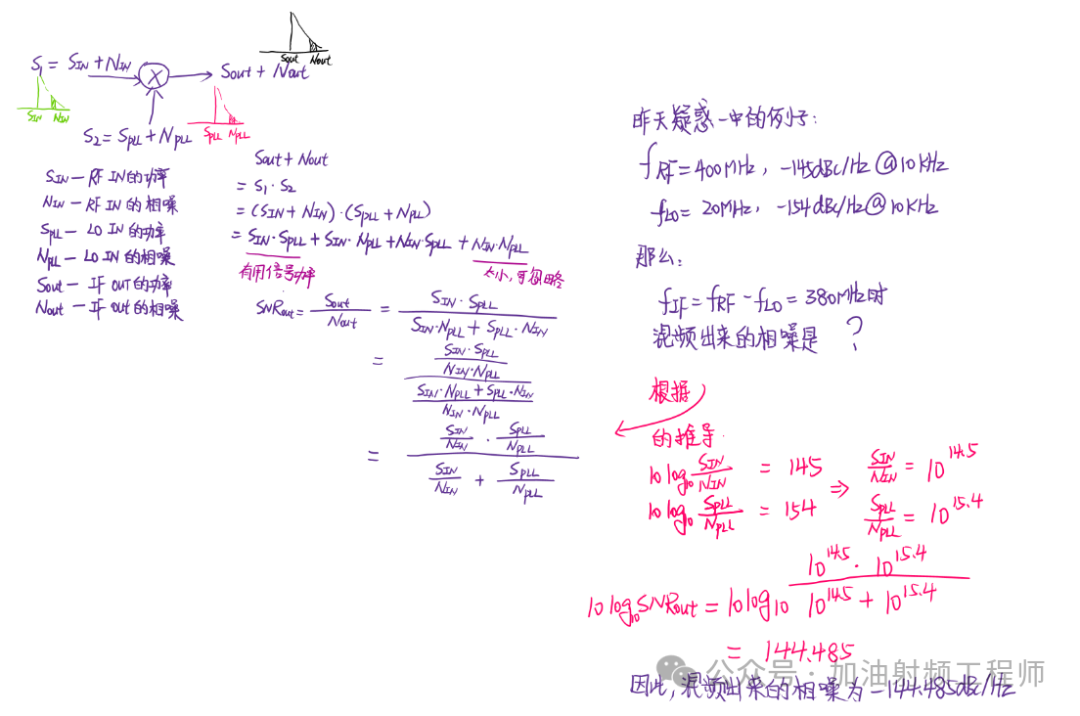 Sout Nout
S₁ = SIN + NIN
Sout + Nout
SIN NIN
SPLL NPLL
S₂ = SPLL + NPLL
SIN — RF IN的功率
NIN — RF IN的相噪
SPLL — LO IN的功率
NPLL — LO IN的相噪
Sout — IF OUT的功率
Nout — IF OUT的相噪
Sout + Nout
= S₁ · S₂
= (SIN + NIN) · (SPLL + NPLL)
= SIN · SPLL + SIN · NPLL + NIN · SPLL + NIN · NPLL
有用信号功率
太小,可忽略
SNRout = Sout / Nout = (SIN · SPLL) / (SIN · NPLL + SPLL · NIN)
= ((SIN · SPLL) / (NIN · NPLL)) / ((SIN · NPLL + SPLL · NIN) / (NIN · NPLL))
= (SIN / NIN · SPLL / NPLL) / (SIN / NIN + SPLL / NPLL)
昨天疑惑一中的例子:
fRF = 400MHz, -145dBc/Hz @10KHz
fLO = 20MHz, -154dBc/Hz@10KHz
那么:
fIF = fRF - fLO = 380MHz时
混频出来的相噪是 ?
根据
的推导
10log₁₀ SIN / NIN = 145 ⇒ SIN / NIN = 10^14.5
10log₁₀ SPLL / NPLL = 154 SPLL / NPLL = 10^15.4
10log₁₀SNRout = 10log₁₀ (10^14.5 · 10^15.4) / (10^14.5 + 10^15.4)
= 144.485
公众号:加油射频工程师
因此,混频出来的相噪为-144.485dBc/Hz